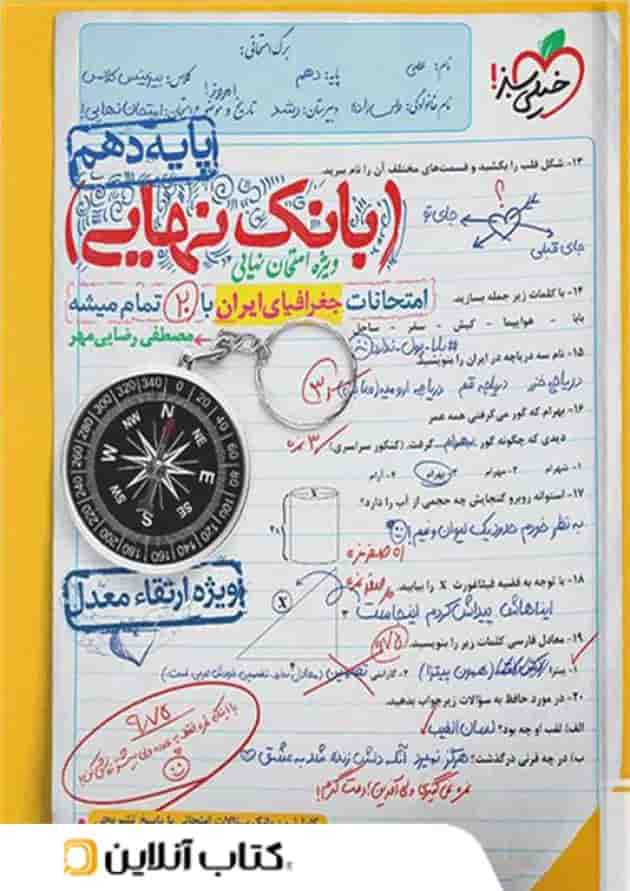 برگ امتحانی:
نام:
پایه: دهم
کلاس:
نام خانوادگی:
دبیرستان: رشد
خیلی سبز!
پایه دهم
۱۳- شکل قلب را بکشید و قسمت‌های مختلف آن را نام ببرید.
؟
جای تو
جای قبلی
(بانک نهایی)
ویژه امتحان نهایی
امتحانات جغرافیای ایران با ۲۰ تمام میشه
مصطفی رضایی‌مهر
۱۴- با کلمات زیر جمله بسازید.
بابا - هواپیما - کیش - سفر - ساحل
#بابا_پول_نداره
۱۵- نام سه دریاچه در ایران را بنویسید.
دریاچه خزر دریاچه قم دریاچه ارومیه
۱۶- بهرام که گور می‌گرفتی همه عمر
دیدی که چگونه گور بهرام گرفت. (کنکور سراسری)
۱- شهرام ۲- مهرام ۳- بهرام ۴- آرام
۱۷- استوانه روبرو گنجایش چه حجمی از آب را دارد؟
به نظر خودم حدود یک لیوان و نیم!
۱۸- با توجه به قضیه فیثاغورث X را بیابید.
ایناهاش پیداش کردم اینجاست
X
۱۹- معادل فارسی کلمات زیر را بنویسید.
۱- پیتزا
۲- گارانتی
۲۰- در مورد حافظ به سؤالات زیر جواب بدهید.
الف) لقب او چه بود؟ لسان الغیب
ب) در چه قرنی درگذشت؟ هرگز نمیرد آنکه دلش زنده شد به عشق
ویژه ارتقاء معدل
۹/۷۵
N
NE
E
SE
S
SW
W
NW
0 20 40 60 80 100 120 140 160 180 200 220 240 260 280 300 320 340
کتاب آنلاین